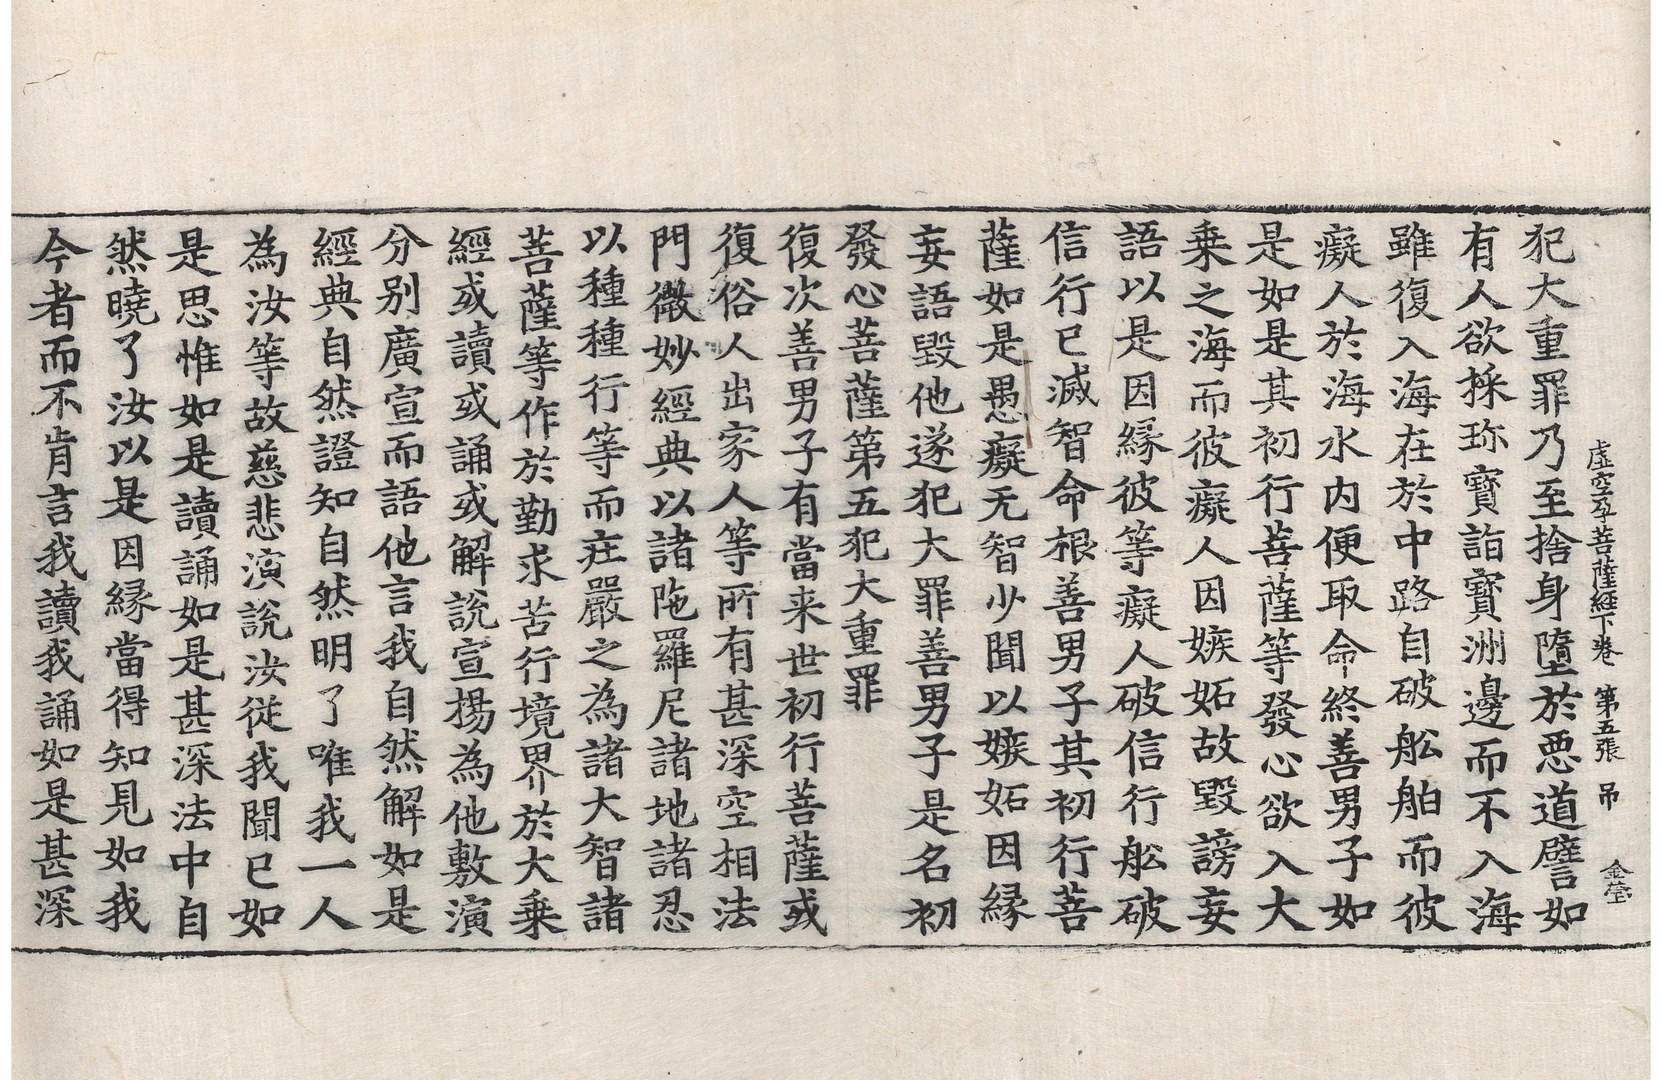 虛空孕菩薩經下卷　第五張　吊　金瑩
犯大重罪乃至捨身墮於惡道譬如
有人欲採珎寶詣寶洲邊而不入海
雖復入海在於中路自破舩舶而彼
癡人於海水内便取命終善男子如
是如是其初行菩薩等發心欲入大
乗之海而彼癡人因嫉妬故毀謗妄
語以是因縁彼等癡人破信行舩破
信行已滅智命根善男子其初行菩
薩如是愚癡无智少聞以嫉妬因縁
妄語毀他遂犯大罪善男子是名初
發心菩薩第五犯大重罪
復次善男子有當来世初行菩薩或
復俗人出家人等所有甚深空相法
門微妙經典以諸陁羅尼諸地諸忍
以種種行等而荘嚴之為諸大智諸
菩薩等作於勤求苦行境界於大乗
經或讀或誦或解説宣揚為他敷演
分别廣宣而語他言我自然解如是
經典自然證知自然明了唯我一人
為汝等故慈悲演說汝從我聞已如
是思惟如是讀誦如是甚深法中自
然曉了汝以是因縁當得知見如我
今者而不肯言我讀我誦如是甚深